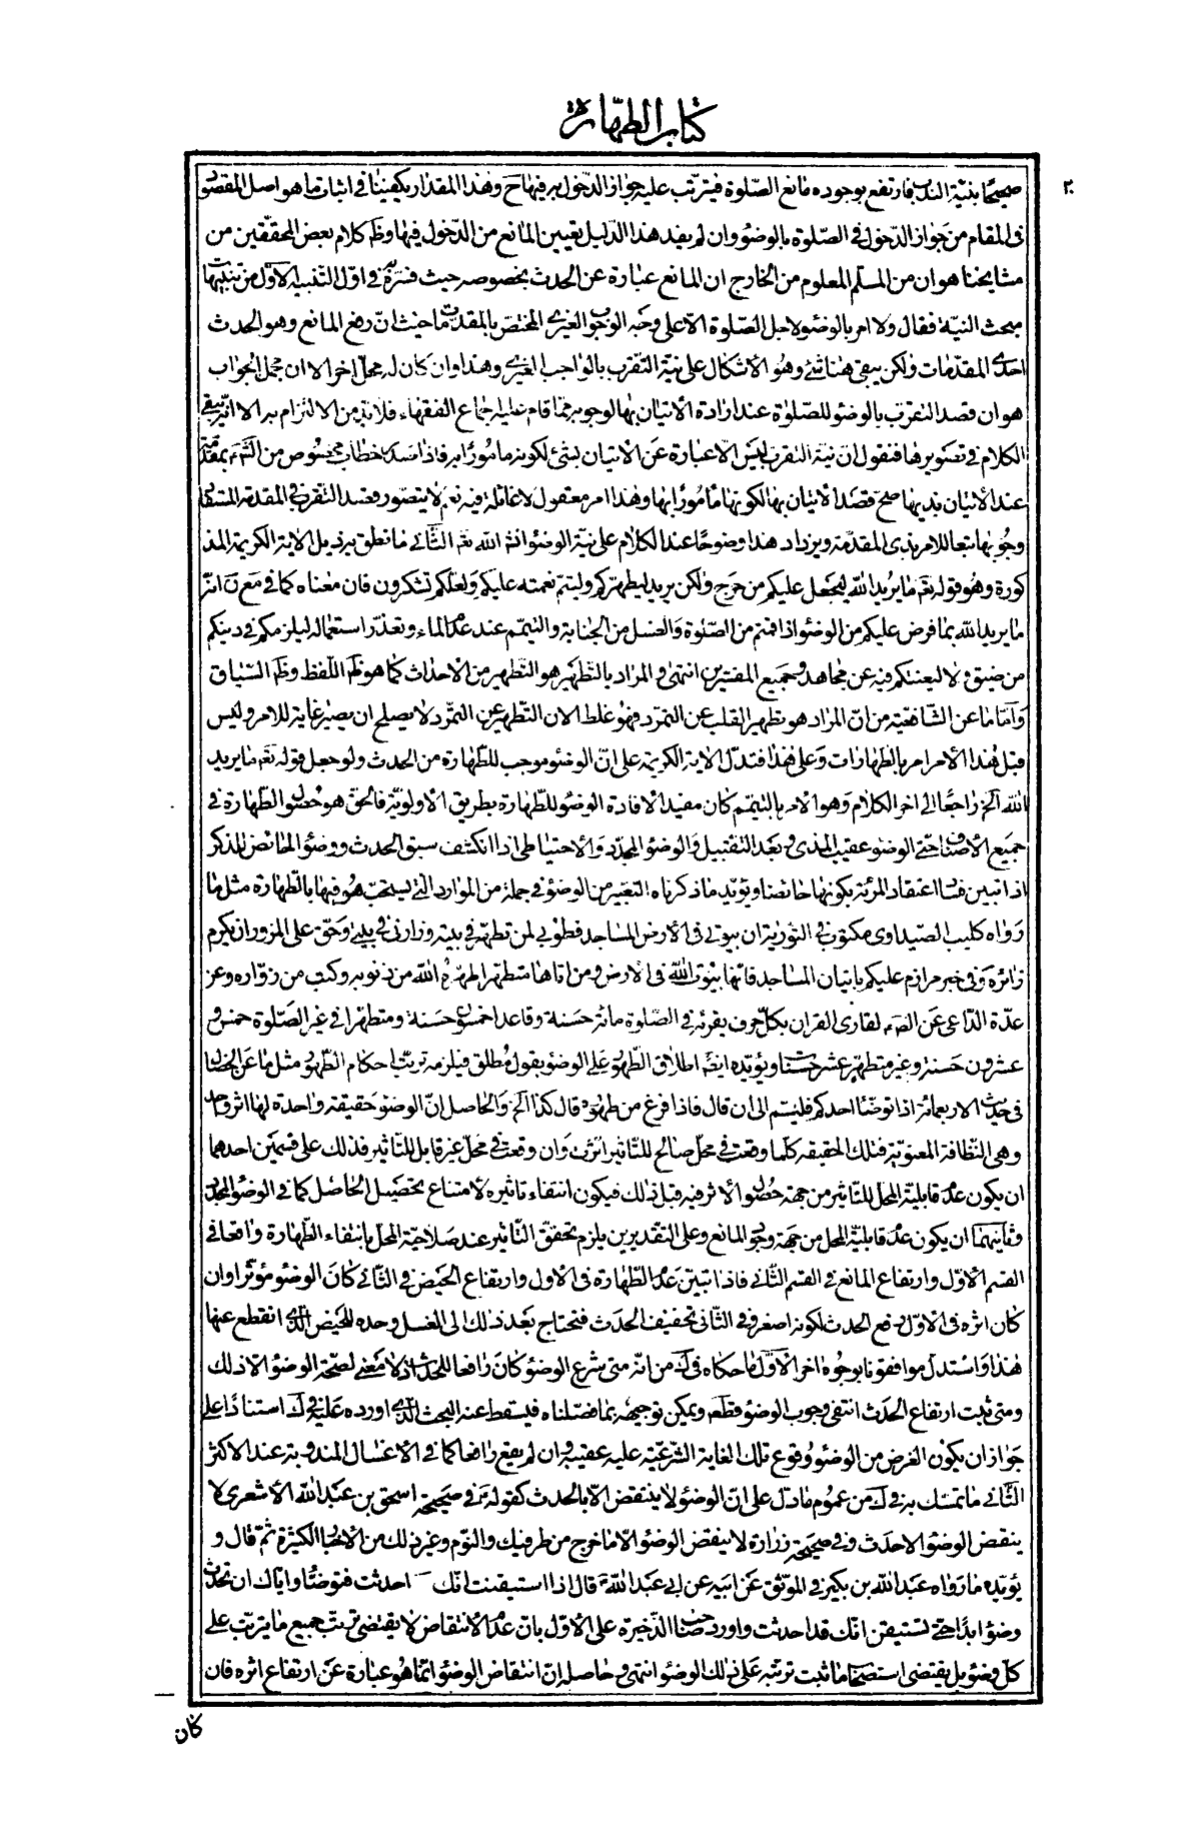 كتاب الطهارة
٢
صحيحا بنية الندب فارتفع بوجوده مانع الصّلوة فيترتّب عليه جواز الدّخول به فيها ح وهذا المقدار يكفينا في اثبات ما هو اصل المقصود
في المقام من جواز الدّخول في الصّلوة بالوضوء وان لم يفد هذا الدّليل تعيين المانع من الدّخول فيها وظ كلام بعض المحقّقين من
مشايخنا هو ان من المسلّم المعلوم من الخارج ان المانع عبارة عن الحدث بخصوصه حيث فسّره في اوّل التّنبيه الاوّل من تنبيهات
مبحث النية فقال ولا امر بالوضوء لاجل الصّلوة الّا على وجه الوجوب الغيري المختصّ بالمقدّمات ما حيث انّ رفع المانع وهو الحدث
احدى المقدّمات ولكن يبقى هنا شئ وهو الاشكال على نيّة التّقرب بالواجب الغيري وهذا وان كان له محل اخر الا ان مجمل الجواب
هو ان قصد التقرب بالوضوء للصّلوة عند ارادة الاتيان بها لوجوبه مما قام عليه اجماع الفقهاء فلا بدّ من الالتزام به الا انّه يبقى
الكلام في تصويرها فنقول ان نيّة التقرب ليس الّا عبارة عن الاتيان بشئ لكونه مامورا به فاذا خطاب مخصوص من الشّرع بمقدّمة
عند الاتيان بذيها صحّ قصد الاتيان بها لكونها مامورا بها وهذا امر معقول لا غائلة فيه نعم لا يتصوّر قصد التقرب في المقدّمة
وجوبها تبعا للامر بذى المقدّمة ويزداد هذا وضوحا عند الكلام على نيّة الوضوء انش الله تعم الثّاني ما نطق به ذيل الاية الكريمة المذ
كورة وهو قوله تعم ما يريد الله ليجعل عليكم من حرج ولكن يريد ليطهّركم وليتم نعمته عليكم ولعلّكم تشكرون فان معناه كما في مع انّه
ما يريد الله بما فرض عليكم من الوضوء اذا قمتم من الصّلوة والغسل من الجنابة والتيمّم عند عدم الماء وتعذّر استعماله ليلزمكم في دينكم
من ضيق ولا ليعنتكم فيه عن مجاهد وجميع المفسّرين انتهى والمراد بالتّطهير هو التّطهير من الاحداث كما هو ظم اللّفظ وظم السّياق
وامّا ما عن الشّافعيّة من انّ المراد هو تطهير القلب عن التمرّد فهو غلط لان التّطهير عن التمرّد لا يصلح ان يصير غاية للامر وليس
قبل هذا الامر امر بالطهارات وعلى هذا فتدلّ الاية الكريمة على انّ الوضوء موجب للطّهارة من الحدث ولو جعل قوله تعم ما يريد
الله آلخ راجعا الى اخر الكلام وهو الامر بالتيمّم كان مفيد الافادة الوضوء للطّهارة بطريق الاولويّة فالحقّ هو حصول الطّهارة في
جميع الاصناف حتّى الوضوء عقيب المذي وبعد التقبيل والوضوء المجدّد والاحتياطى اذا انكشف سبق الحدث ووضوء الحائض للذكر
اذا تبين فساد اعتقاد المرئة بكونها حائضا ويؤيّد ما ذكرناه التعبير من الوضوء في جملة من الموارد التي يستحبّ هو فيها بالطّهارة مثل ما
رواه كليب الصّيداوى مكتوب في التّورية ان بيوتي في الارض المساجد فطوبى لمن تطهّر في بيته وزارنى في بيتي وحقّ على المزور ان يكرم
زائره وفي خبر مرازم عليكم باتيان المساجد فانّها بيوت الله في الارض ومن اتاها متطهّرا طهّره الله من ذنوبه وكتب من زوّاره وعن
عدّة الدّاعى عن الصم لقارى القران بكلّ حرف يقرئه في الصّلوة مائة حسنة وقاعدا خمسون حسنة ومتطهّرا في غير الصّلوة خمس و
عشرون حسنة وغير متطهّر عشر حسنات ويؤيّده ايضا اطلاق الطّهور على الوضوء بقول مطلق فيلزمه ترتّب احكام الطّهور مثل ما عن الخصال
في حديث الاربعمائة اذا توضّأ احدكم فليسم الى ان قال فاذا فرغ من طهوره قال كذا آلخ والحاصل انّ الوضوء حقيقة واحدة لها اثر واحد
وهي النّظافة المعنويّة فتلك الحقيقة كلّما وقعت في محلّ صالح للتّاثير اثّرت وان وقعت في محلّ غير قابل للتّاثير فذلك على قسمين احدهما
ان يكون عدم قابليّة المحلّ للتّاثير من جهة حصول الاثر فيه قبل ذلك فيكون انتفاء تاثيره لامتناع تحصيل الحاصل كما في الوضوء المجدّد
وثانيهما ان يكون عدم قابليّة المحل من جهة وجود المانع وعلى التقديرين يلزم تحقّق التّاثير عند صلاحيّة المحل بانتفاء الطّهارة واقعا في
القسم الاوّل وارتفاع المانع في القسم الثّاني فاذا تبيّن عدم الطّهارة في الاول وارتفاع الحيض في الثّاني كان الوضوء مؤثّرا وان
كان اثره في الاوّل رفع الحدث لكونه اصغر وفي الثّاني تخفيف الحدث فتحتاج بعد ذلك الى الغسل وحده للحيض الّذي انقطع عنها
هذا واستدل موافقونا بوجوه اخر الاوّل ما حكاه في ك من انّه متى شرع الوضوء كان رافعا للحدث اذ لا معنى لصحّة الوضوء الّا ذلك
ومتى ثبت ارتفاع الحدث انتفى وجوب الوضوء قطعا ويمكن توجيهه بما فصّلناه فيسقط عنه البحث الّذي اورده عليه في ك استنادا على
جواز ان يكون الغرض من الوضوء وقوع تلك الغاية الشّرعيّة عليه عقيبه وان لم يقع رافعا كما في الاغسال المندوبة عند الاكثر
الثّاني ما تمسّك به في ك من عموم ما دلّ على انّ الوضوء لا ينتقض الّا بالحدث كقوله ع في صحيحة اسحق بن عبد الله الاشعرى لا
ينقض الوضوء الّا حدث وفي صحيحة زرارة لا ينقض الوضوء الّا ما خرج من طرفيك والنّوم وغير ذلك من الاخبار الكثيرة ثمّ قال و
يؤيّده ما رواه عبد الله بن بكير في الموثّق عن ابيه عن ابي عبد الله ع قال اذا استيقنت انّك احدثت فتوضّأ وايّاك ان تحدث
وضوءا ابدا حتّى تستيقن انّك قد احدثت واورد صاحب الذّخيرة على الاوّل بانّ عدم الانتقاض لا يقتضى ترتّب جميع ما يترتّب على
كلّ وضوء بل يقتضى استصحاب ما ثبت ترتّبه على ذلك الوضوء انتهى وحاصله انّ انتقاض الوضوء انّما هو عبارة عن ارتفاع اثره فان
كان